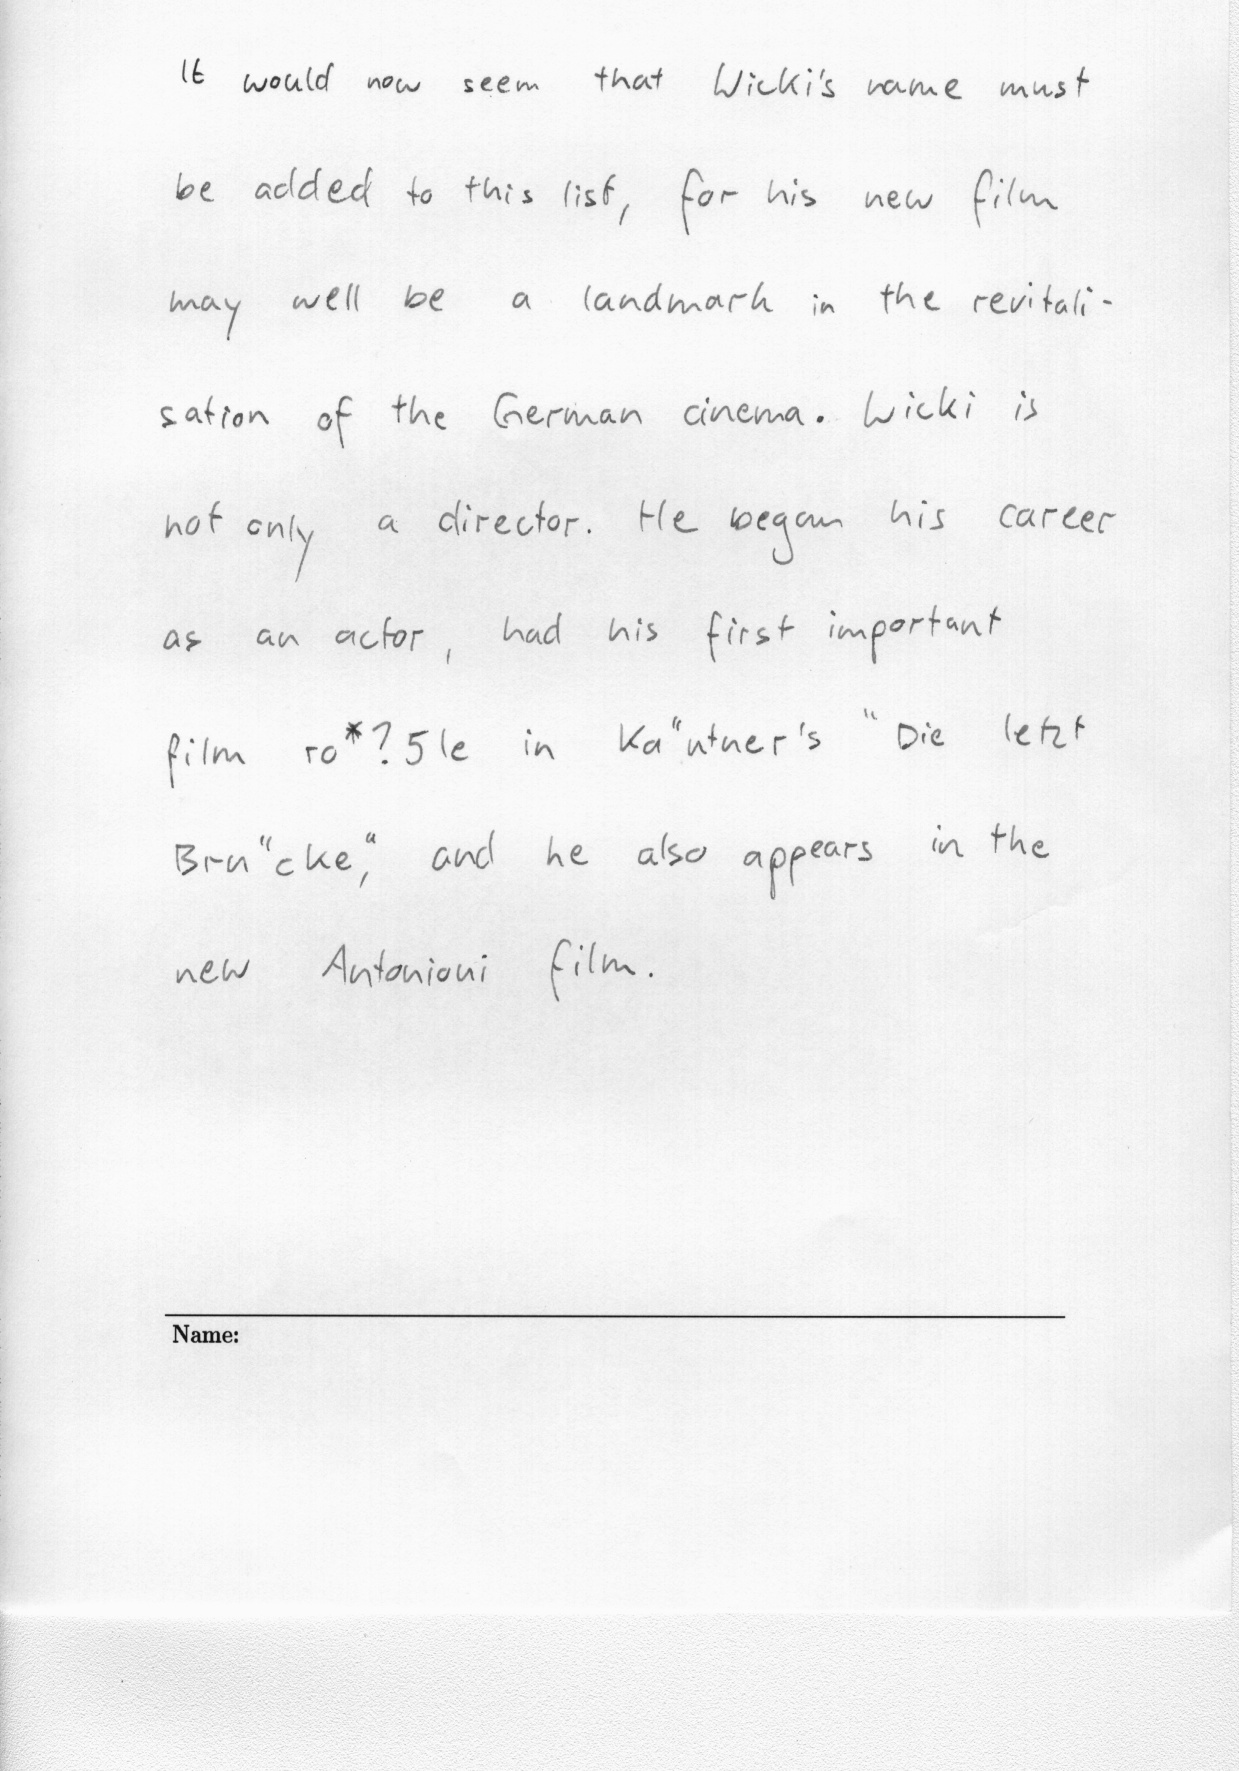 It would now seem that Wicki's name must
be added to this list, for his new film
may well be a landmark in the revitali-
sation of the German cinema. Wicki is
not only a director. He began his career
as an actor, had his first important
film ro*?5le in Ka"utner's "Die letzt
Bru"cke", and he also appears in the
new Antonioni film.
Name: